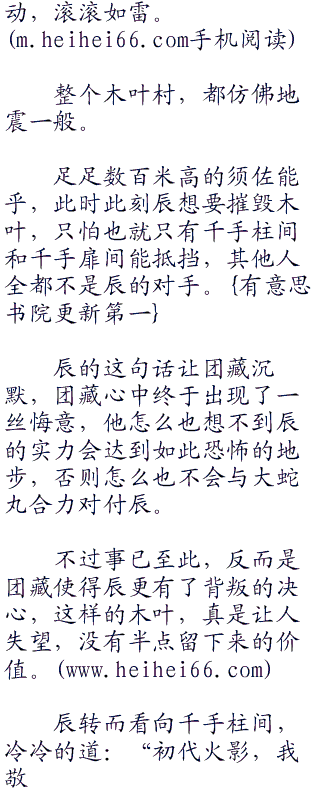 动，滚滚如雷。
(m.heihei66.com手机阅读)
整个木叶村，都仿佛地
震一般。
足足数百米高的须佐能
乎，此时此刻辰想要摧毁木
叶，只怕也就只有千手柱间
和千手扉间能抵挡，其他人
全都不是辰的对手。{有意思
书院更新第一}
辰的这句话让团藏沉
默，团藏心中终于出现了一
丝悔意，他怎么也想不到辰
的实力会达到如此恐怖的地
步，否则怎么也不会与大蛇
丸合力对付辰。
不过事已至此，反而是
团藏使得辰更有了背叛的决
心，这样的木叶，真是让人
失望，没有半点留下来的价
值。(www.heihei66.com)
辰转而看向千手柱间，
冷冷的道：“初代火影，我
敬